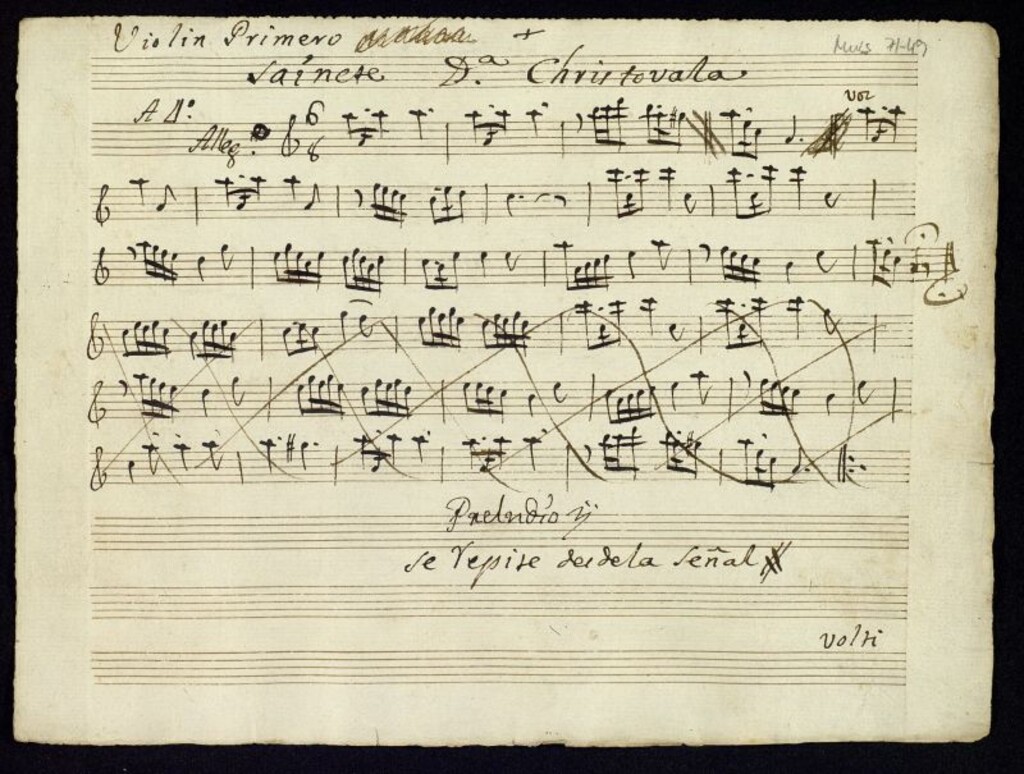 Violin Primero
Saínete D.ª Christovala
A Dº.
Alleg.º 6 8
voz
Preludio
se repite desdela señal
volti